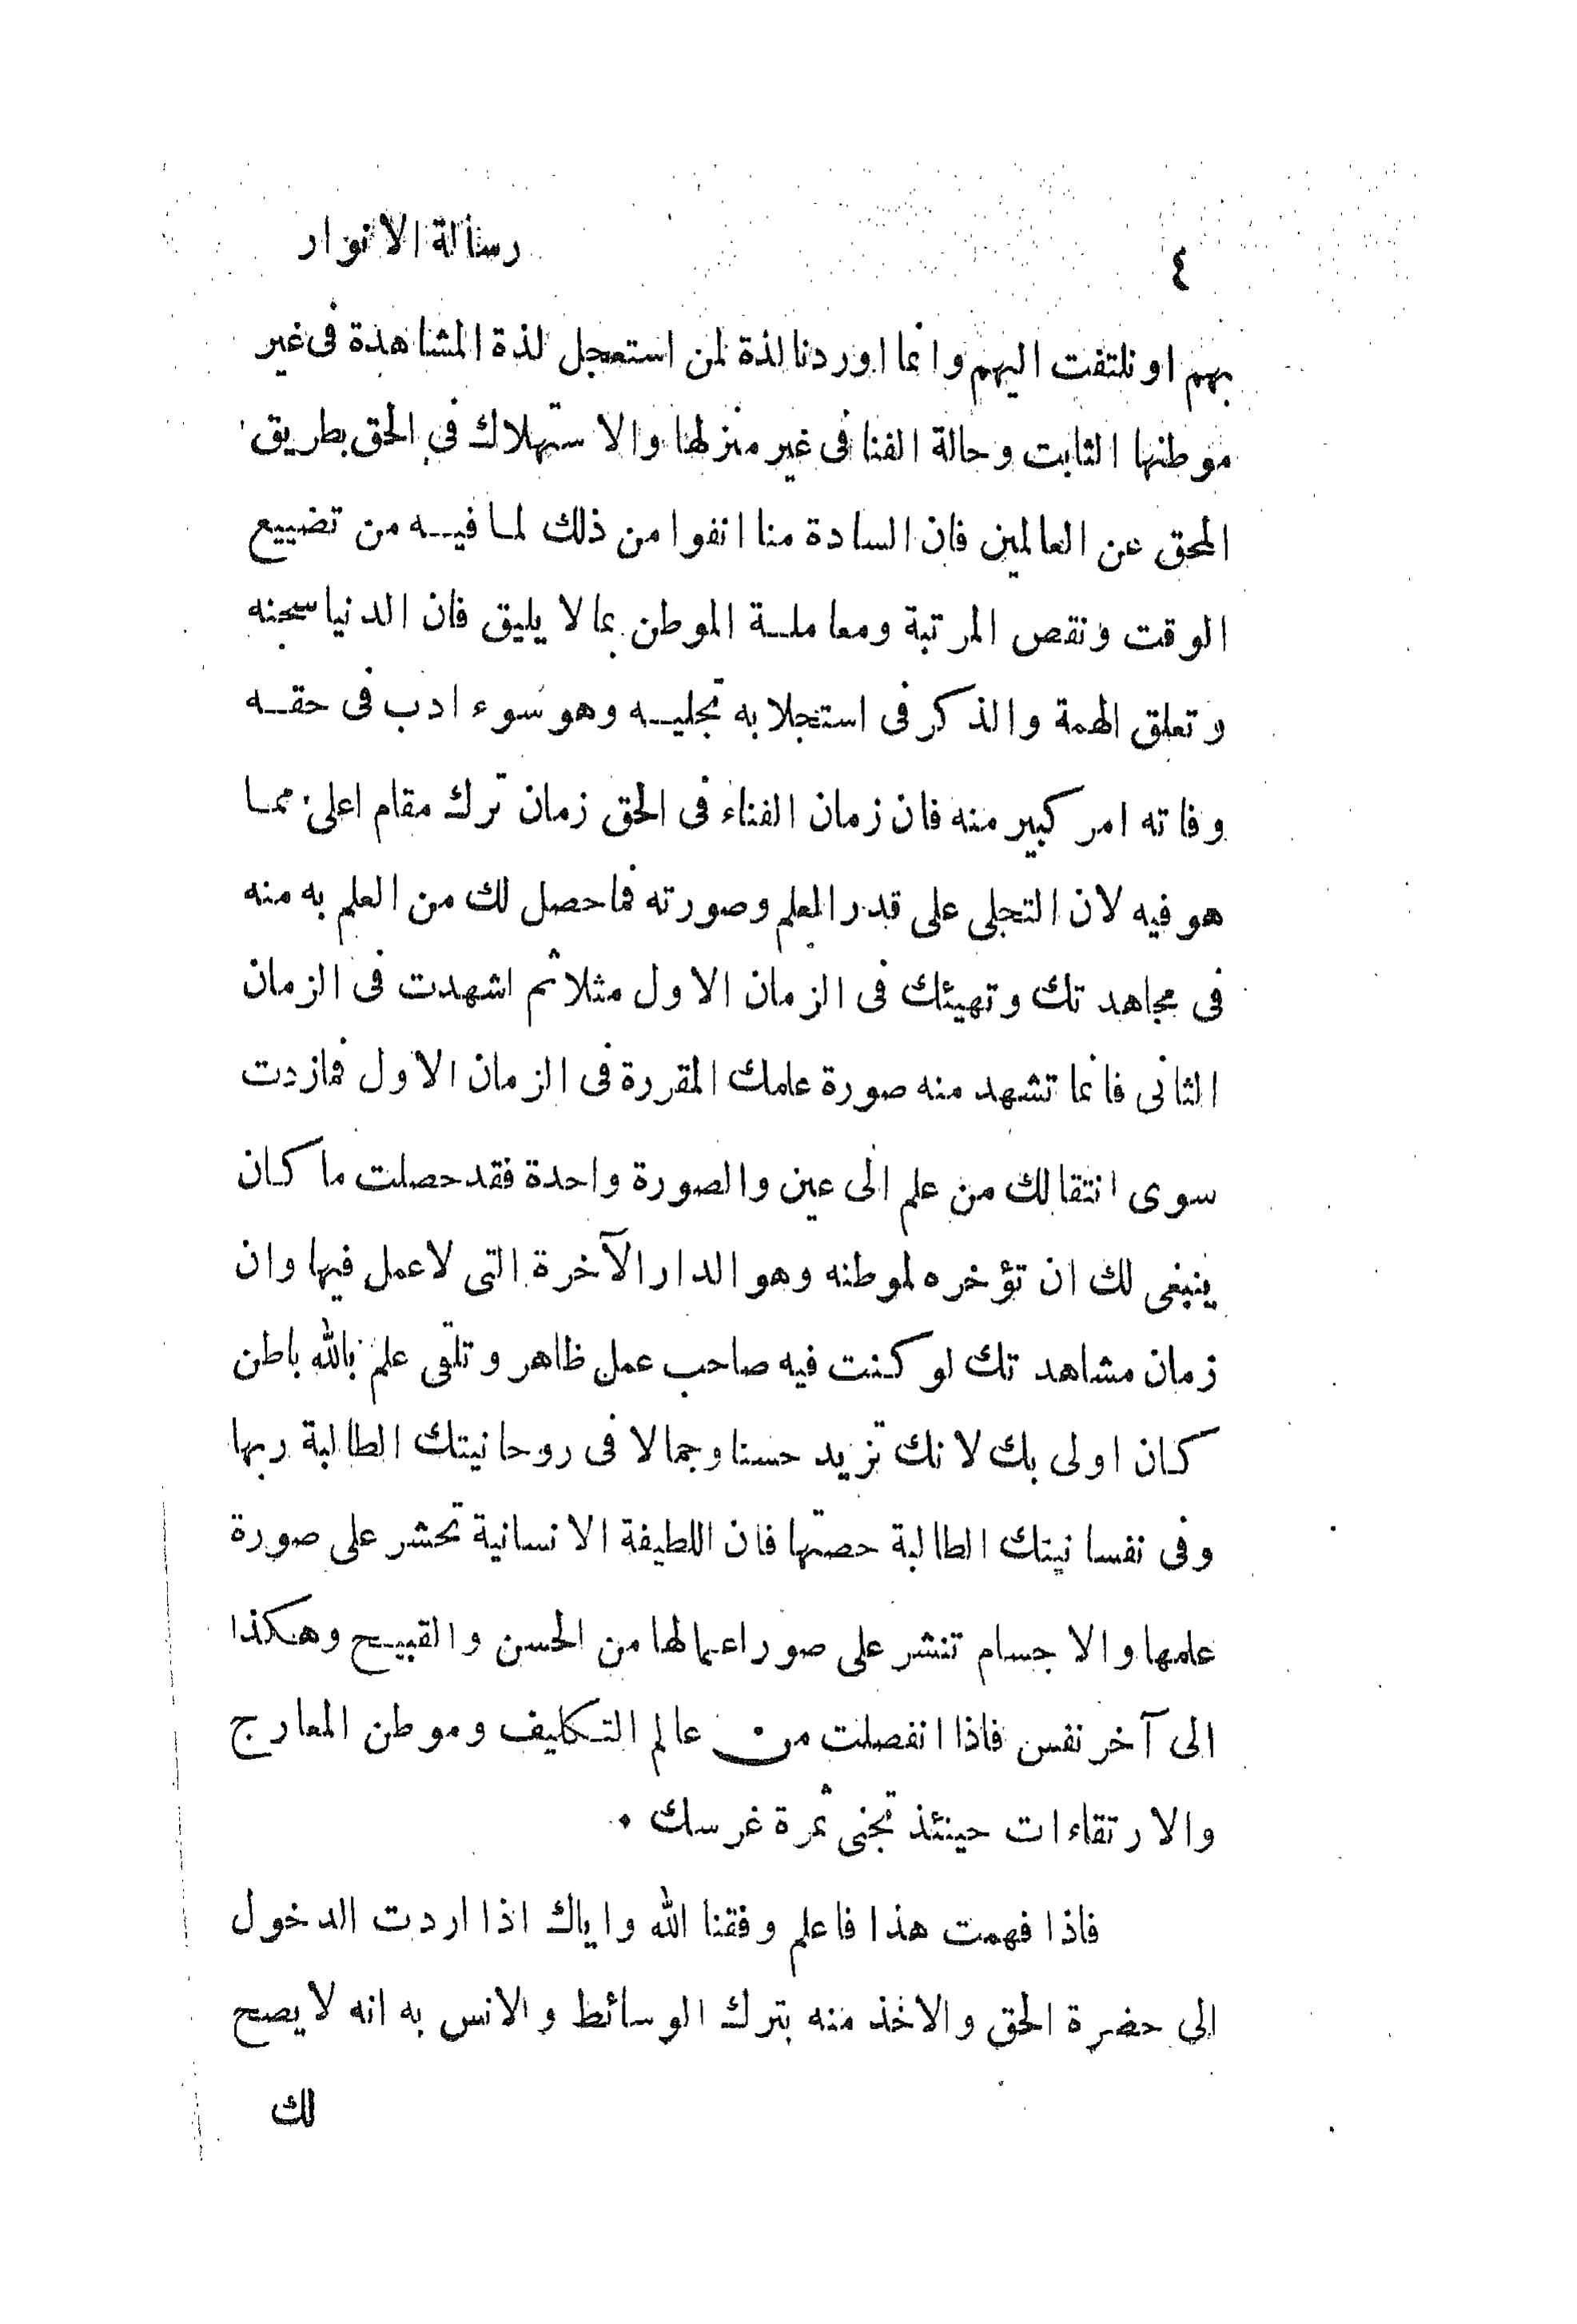 ٤
رسالة الانوار
بهم او نلتفت اليهم وانما اوردنا لذة لمن استعجل لذة المشاهدة فى غير
موطنها الثابت وحالة الفنا فى غير منزلها والاستهلاك فى الحق بطريق
المحق عن العالمين فان السادة منا انفوا من ذلك لما فيه من تضييع
الوقت ونقص المرتبة ومعاملة الموطن بما لا يليق فان الدنيا سجنه
وتعلق الهمة والذكر فى استجلابه تجليه وهو سوء ادب فى حقه
وفاته امر كبير منه فان زمان الفناء فى الحق زمان ترك مقام اعلى مما
هو فيه لان التجلى على قدر العلم وصورته فما حصل لك من العلم به منه
فى مجاهدتك وتهيئك فى الزمان الاول مثلا ثم اشهدت فى الزمان
الثانى فانما تشهد منه صورة علمك المقررة فى الزمان الاول فمازدت
سوى انتقالك من علم الى عين والصورة واحدة فقد حصلت ما كان
ينبغى لك ان تؤخره لموطنه وهو الدار الآخرة التى لا عمل فيها وان
زمان مشاهدتك لو كنت فيه صاحب عمل ظاهر وتلقى علم بالله باطن
كان اولى بك لانك تزيد حسنا وجمالا فى روحانيتك الطالبة ربها
وفى نفسانيتك الطالبة حصتها فان اللطيفة الانسانية تحشر على صورة
علمها والاجسام تنشر على صور اعمالها من الحسن والقبيح وهكذا
الى آخر نفس فاذا انفصلت من عالم التكليف وموطن المعارج
والارتقاءات حينئذ تجنى ثمرة غرسك ٠
فاذا فهمت هذا فاعلم وفقنا الله واياك اذا اردت الدخول
الى حضرة الحق والاخذ منه بترك الوسائط والانس به انه لا يصح
لك